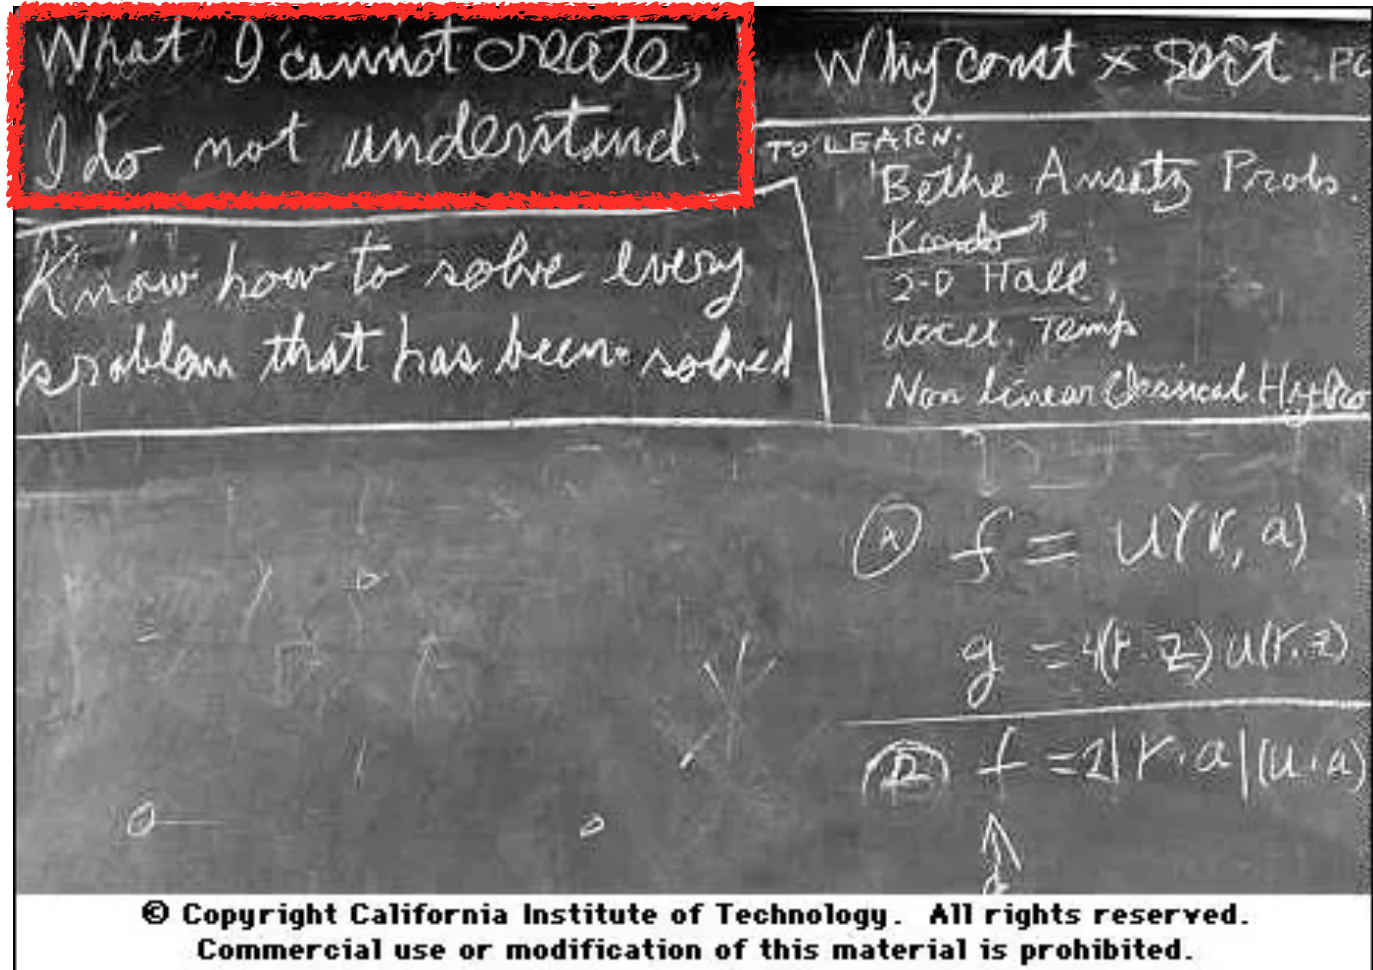 What I cannot create,
I do not understand.
Know how to solve every
problem that has been solved
Why const × sect . PO
TO LEARN:
Bethe Ansatz Probs.
Kondo
2-D Hall
accel. Temp
Non linear Classical Hydro
(A) f = u(r, a)
g = 4(r·z) u(r·z)
f = 2|r·a|(u·a)
© Copyright California Institute of Technology. All rights reserved.
Commercial use or modification of this material is prohibited.